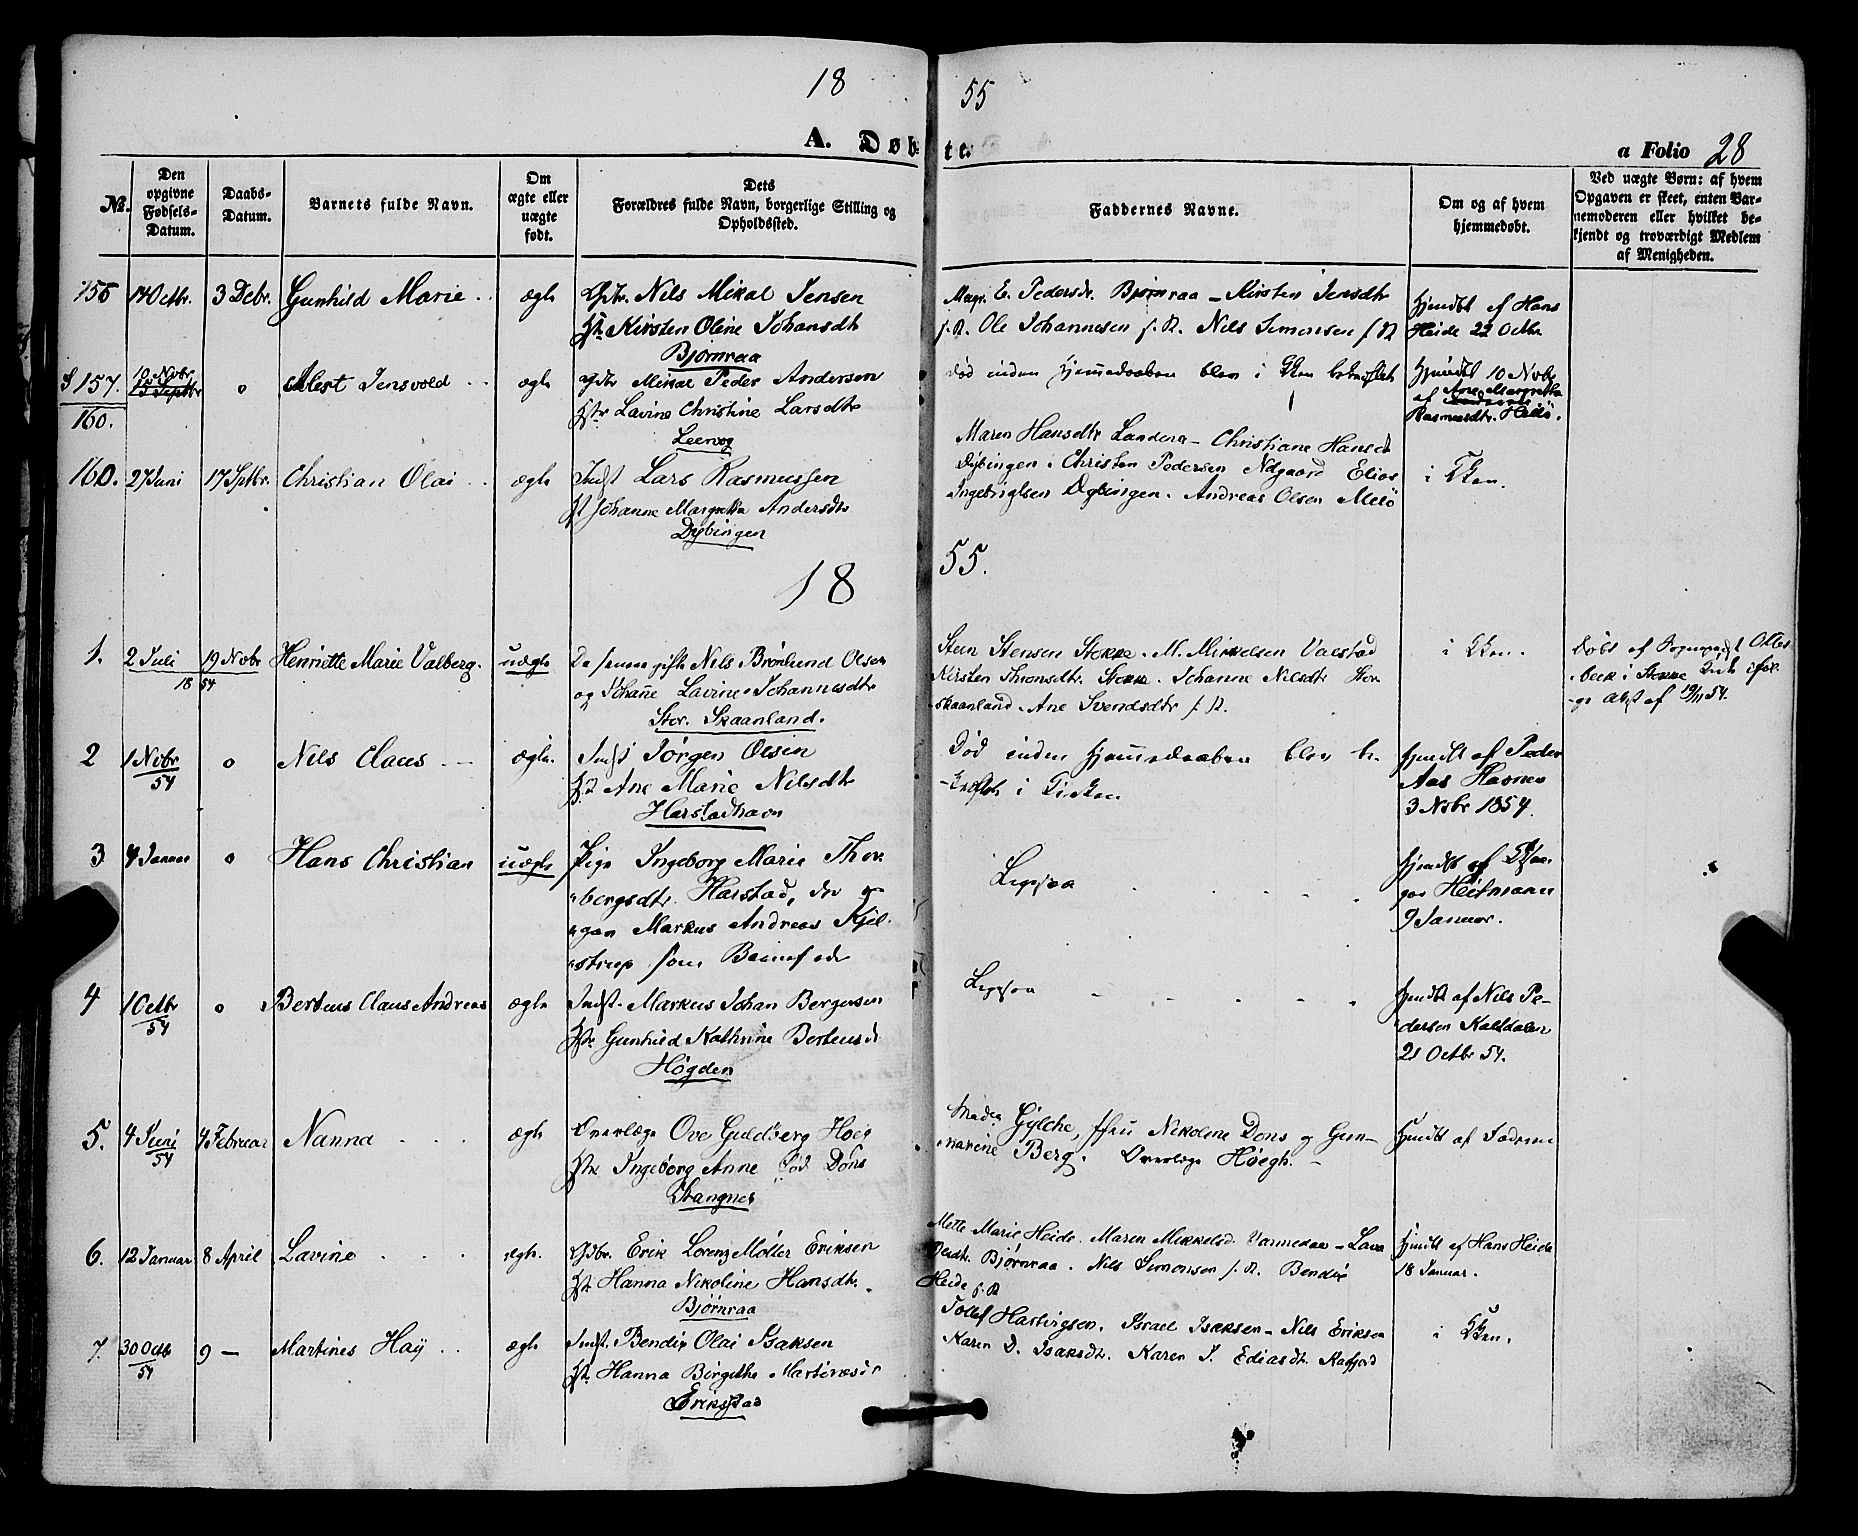 18 55
A. Døbte.
a Folio 28
No.
Den opgivne Fødsels-Datum.
Daabs-Datum.
Barnets fulde Navn.
Om ægte eller uægte født.
Dets Forældres fulde Navn, borgerlige Stilling og Opholdssted.
Faddernes Navne.
Om og af hvem hjemmedøbt.
Ved uægte Børn: af hvem Opgaven er skeet, enten Barnemoderen eller hvilket bekjendt og troværdigt Medlem af Menigheden.
155 17 Octbr. 3 Debr. Gunhild Marie ægte Nils Mikal Jensen
Kirsten Oline Johansdtr
Bjørnraa
E. Pedersdr. Bjørnraa - Kirsten Jensdtr
Ole Johannesen Nils Simonsen
Hjemdbt af Hans
Heide 22 Octbr
157. 10 Novbr 15 Septbr o Jensvold ægte Mikal Peder Andersen
160.
Lavine Christine Larsdtr
Leervog
død inden hjemmedaaben blev i Kken bekræftet
Hjemdbt 10 Novbr
af Ane Margretha
Rasmusdtr.
160. 27 Juni 17 Septbr. Christian Olai ægte Indst Lars Rasmussen
Johanne Margretha Andersdtr
Dybingen
Maren Hansdtr - Christiane Hansdt
Dybingen Christen Pedersen Elias
Ingebrigtsen Dybingen. Andreas Olsen Melø
i Kken.
18 55.
1. 2 Juli 19 Novbr Henriette Marie Valberg. uægte
18 54
gifte Nils Brønlund Olsen
og Johanne Lavine Johannesdtr
Stor. Skaanland.
Sten Stensen Stokke. M. Mikkelsen Valstad
Kirsten Thronsdtr. Stokke. Johanne Nilsdtr Stor
skaanland. Ane Svendsdtr
i Kken.
Døbt af
19/11 54.
2 1 Novbr 54 o Nils Claus ægte. Indst Jørgen Olsen
Ane Marie Nilsdtr
Harstadhavn
Død inden hjemmedaaben blev be-
kræftet i Kirken
Hjemdbt af Peder
Aas Havnen
3 Nobr 1854.
3 4 Januar o Hans Christian uægte Pige Ingeborg Marie Thor
bergsdtr. Harstad, der
Markus Andreas Kjel-
strup som Barnefader
Ligesaa
Hjemdbt af
Heitmann
9 Januar.
4 1 Octbr 54 o Berteus Claus Andreas ægte Indst. Markus Johan Bergersen
Gunhild Kathrine Berteusd
Høgden
Ligesaa
Hjemdbt af Nils Pe-
dersen Kaldalen
21 Octbr 54.
5. 4 Juni 54 4 Februar Nanna ægte Overlæge Ove Guldberg Høeg
Ingeborg Anne født Dons
Stangnes
Nikoline Dons og Gun-
marine Berg. Overlæge Høegh.
Hjemdbt af Faderen
6. 12 Januar 8 April Lavine ægte. Erik Lorenz Møller Eriksen
Hanna Nikoline Hansdtr.
Bjørnraa
Mette Marie Heide. Maren Mikkelsd. Vannedaa - Lava
Bjørnraa. Nils Simonsen Bendix
Heide
Hjemdbt af Hans Heide
18 Januar.
7. 30 Octb 54 9 - Martines Haj ægte Indst. Bendix Olai Isaksen
Hanna Birgithe Martinusdr
Erikstad
Tollef Hartvigsen. Israel Isaksen - Nils Eriksen
Karen D. Isaksdtr. Karen J. Ediasdtr. Kasfjord
i Kken.